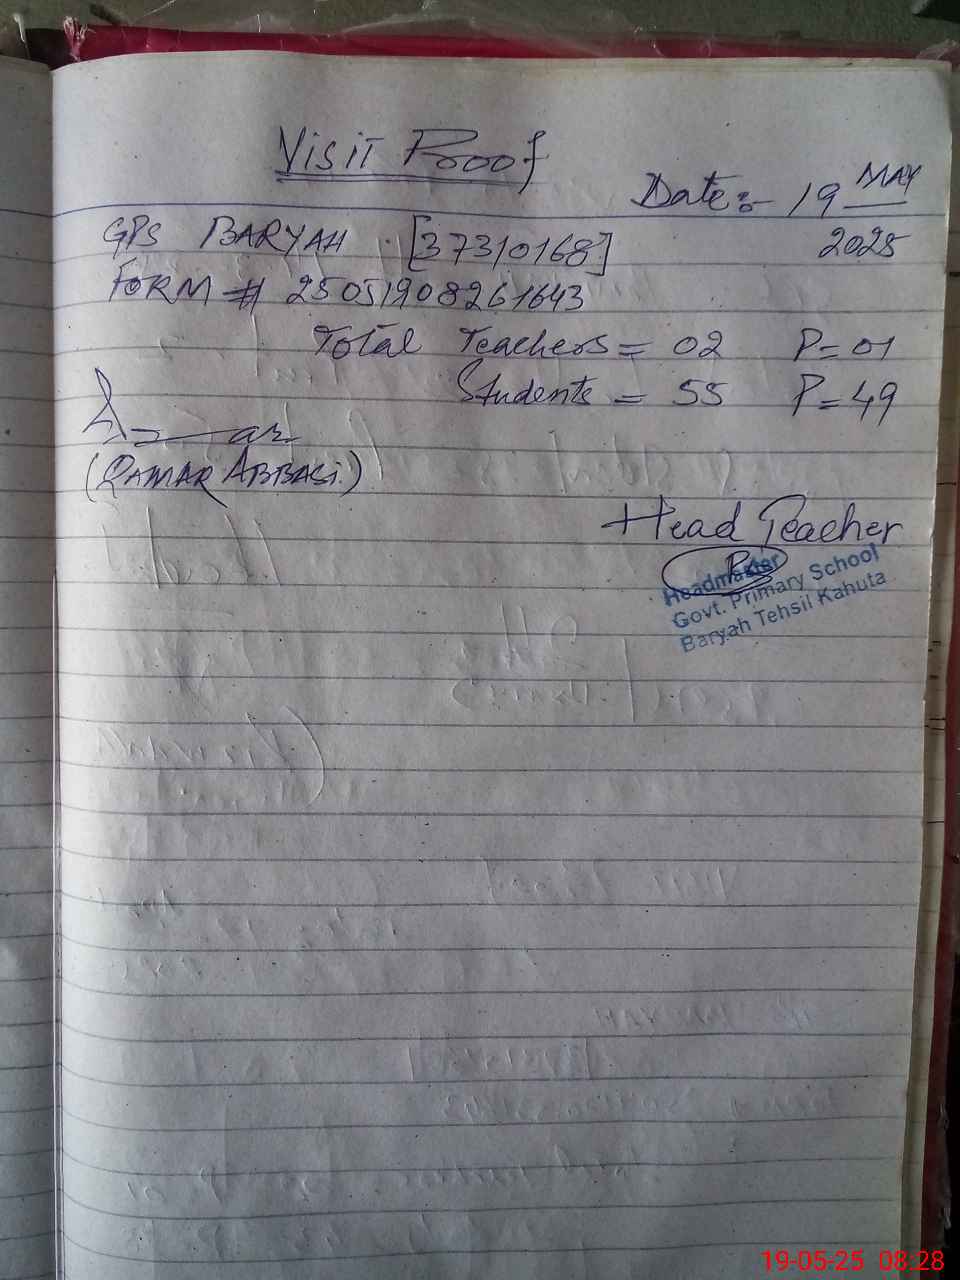 Visit Proof
Date:- 19 MAY
2025
GPS BARYAH [37310168]
FORM # 25051908261643
Total Teachers = 02 P=01
Students = 55 P=49
(QAMAR ABBASI)
Head Teacher
Headmaster
Govt. Primary School
Baryah Tehsil Kahuta
19-05-25 08:28